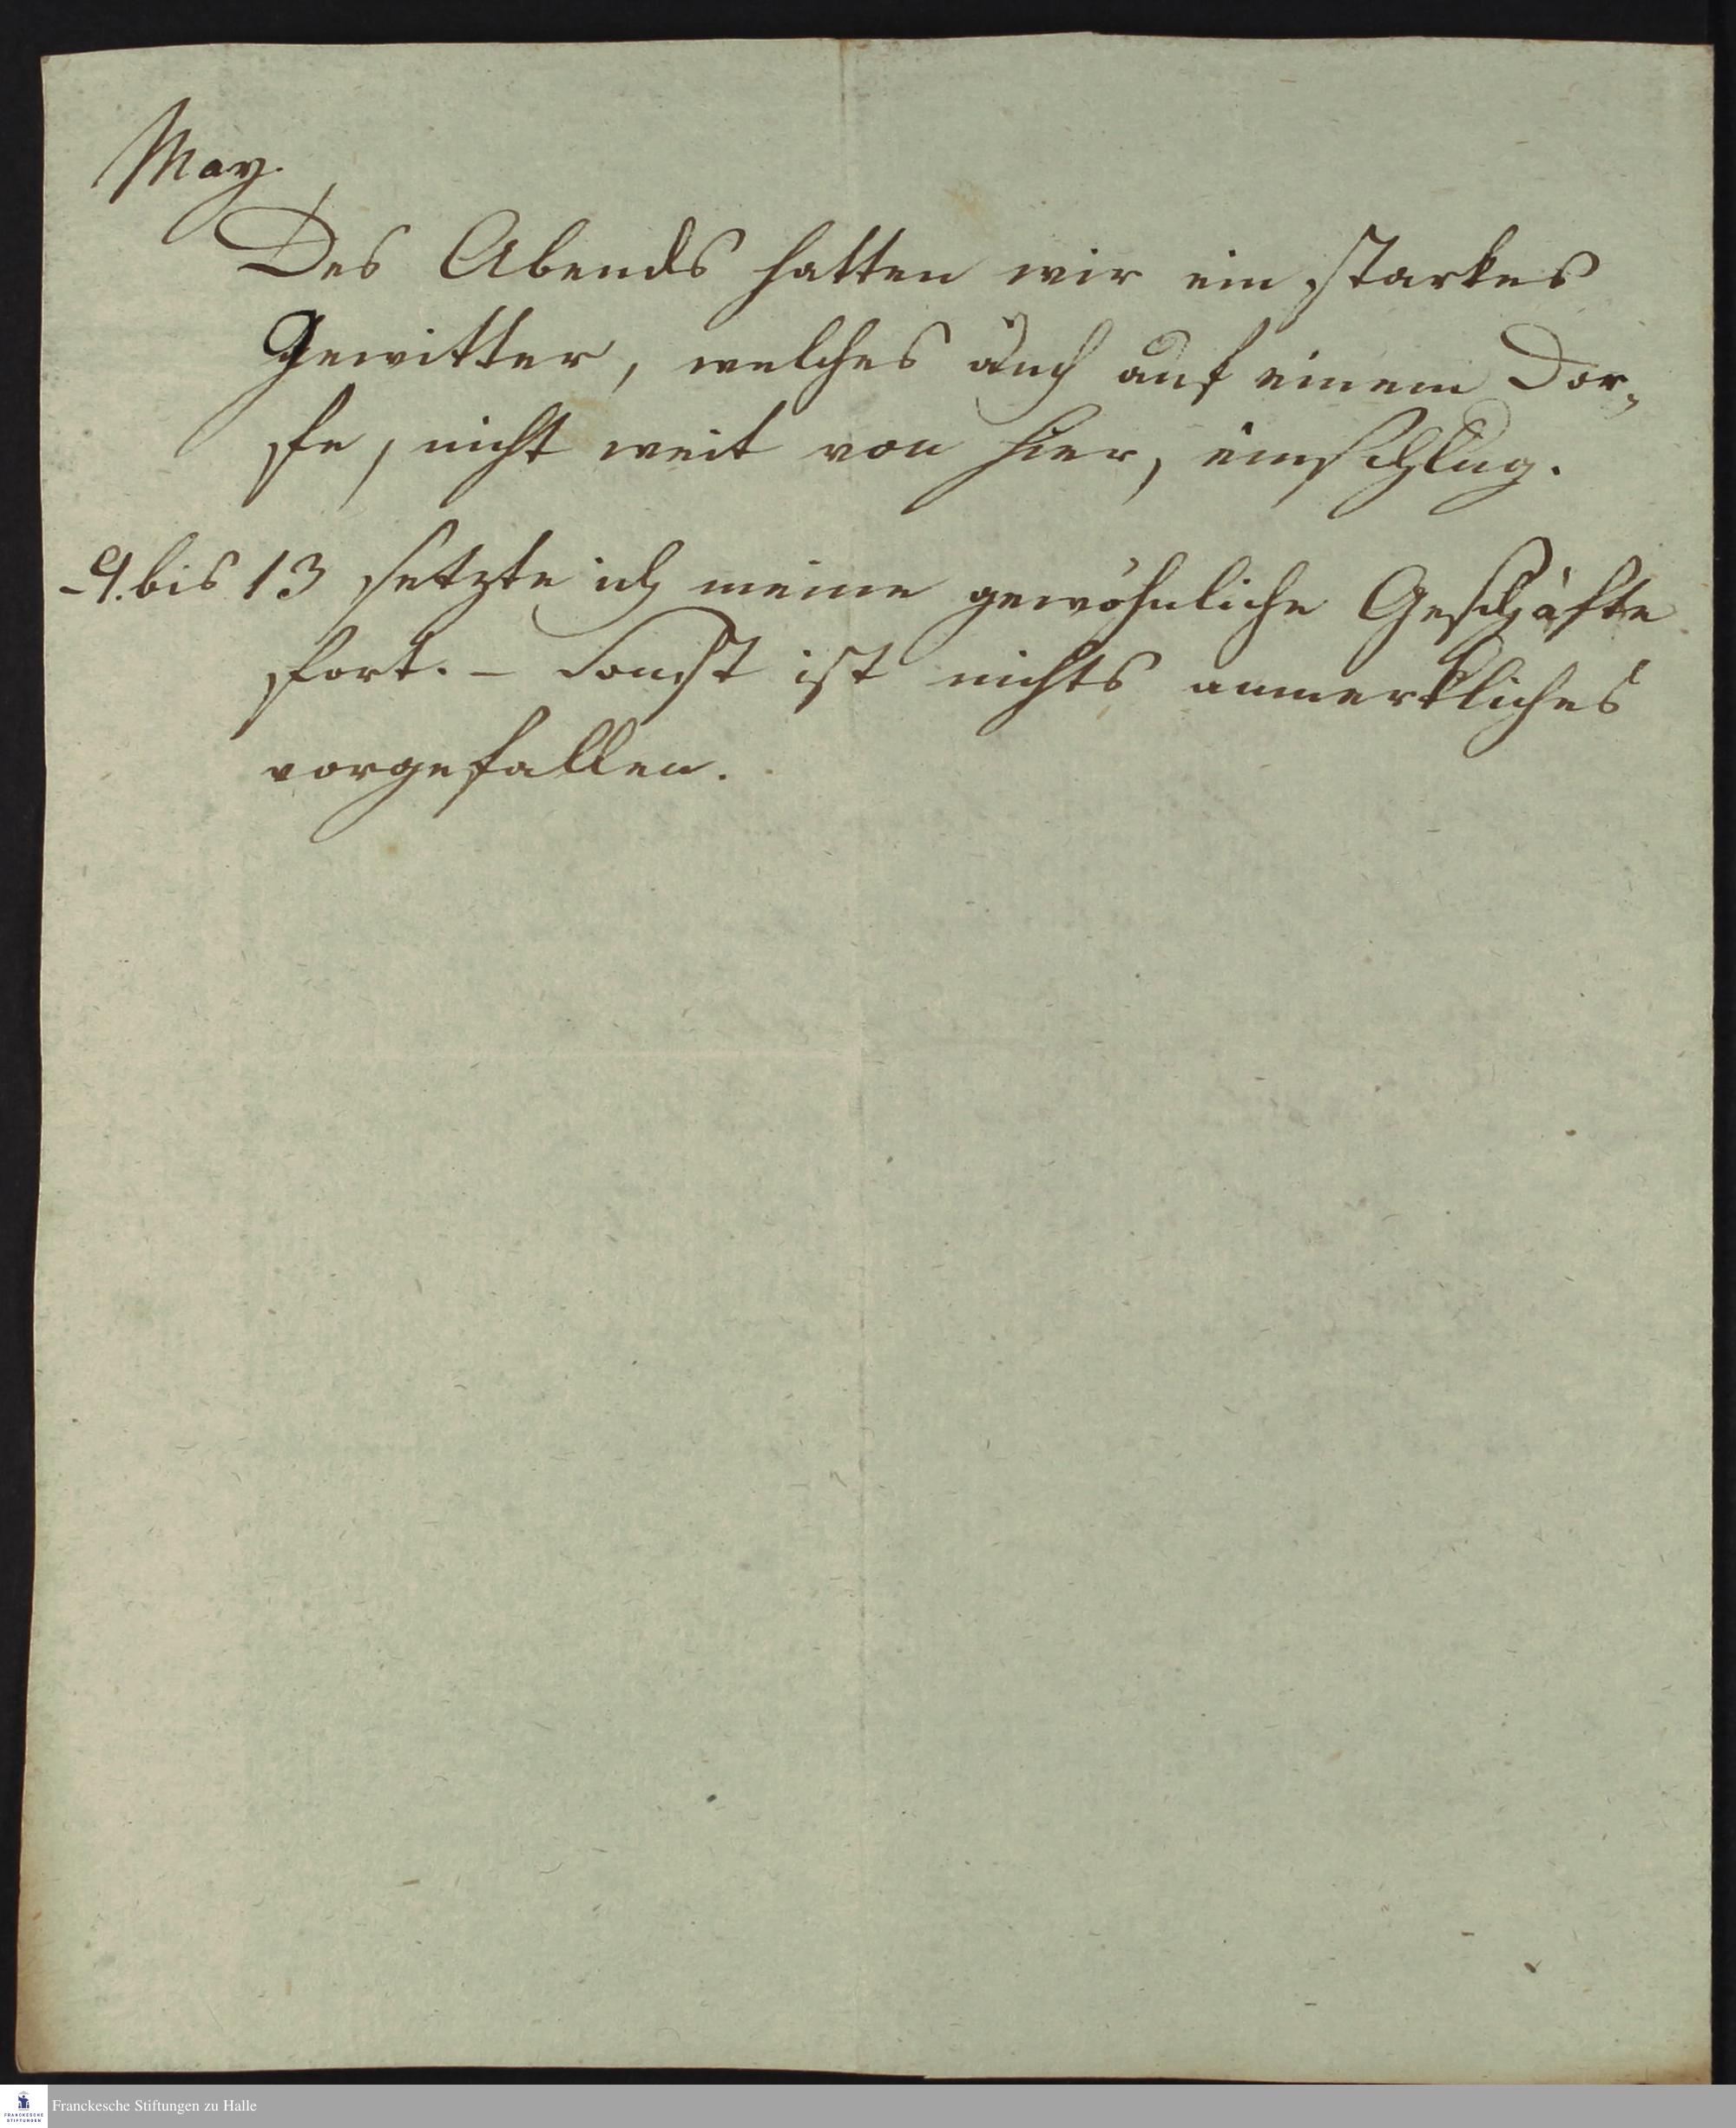 May.
Des Abends hatten wir ein starkes
Gewitter, welches auch auf einem Dor-
fe, nicht weit von hier, einschlug.
-9. bis 13 setzte ich meine gewöhnliche Geschäfte
fort. – Sonst ist nichts anmerkliches
vorgefallen.
FRANCKESCHE
STIFTUNGEN
Franckesche Stiftungen zu Halle